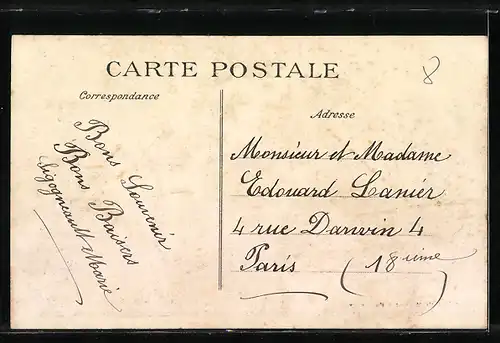 8
CARTE POSTALE
Correspondance
Adresse
Bons Souvenir
Bons Baisers
Sigogneault Marie
Monsieur et Madame
Edouard Lanier
4 rue Darwin 4
Paris (18ième